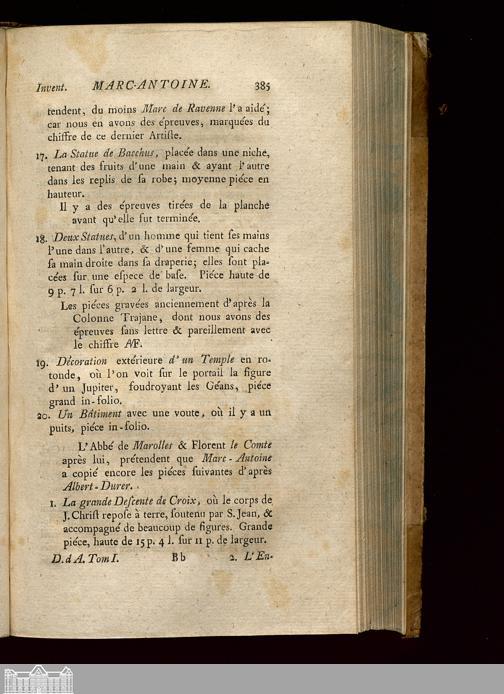 Invent. MARC-ANTOINE. 385
tendent, du moins Marc de Ravenne l'a aidé;
car nous en avons des épreuves, marquées du
chiffre de ce dernier Artiste.
17. La Statue de Bacchus, placée dans une niche,
tenant des fruits d'une main & ayant l'autre
dans les replis de sa robe; moyenne piéce en
hauteur.
Il y a des épreuves tirées de la planche
avant qu'elle fut terminée.
18. Deux Statues, d'un homme qui tient ses mains
l'une dans l'autre, & d'une femme qui cache
sa main droite dans sa draperie; elles sont pla-
cées sur une espece de base. Piéce haute de
9 p. 7 l. sur 6 p. 2 l. de largeur.
Les piéces gravées anciennement d'après la
Colonne Trajane, dont nous avons des
épreuves sans lettre & pareillement avec
le chiffre
19. Décoration extérieure d'un Temple en ro-
tonde, où l'on voit sur le portail la figure
d'un Jupiter, foudroyant les Géans, piéce
grand in-folio.
20. Un Bâtiment avec une voute, où il y a un
puits, piéce in-folio.
L'Abbé de Marolles & Florent le Comte
après lui, prétendent que Marc-Antoine
a copié encore les piéces suivantes d'après
Albert-Durer.
1. La grande Descente de Croix, où le corps de
J. Christ repose à terre, soutenu par S. Jean, &
accompagné de beaucoup de figures. Grande
piéce, haute de 15 p. 4 l. sur 11 p. de largeur.
D. d A. Tom I. Bb 2. L'En-